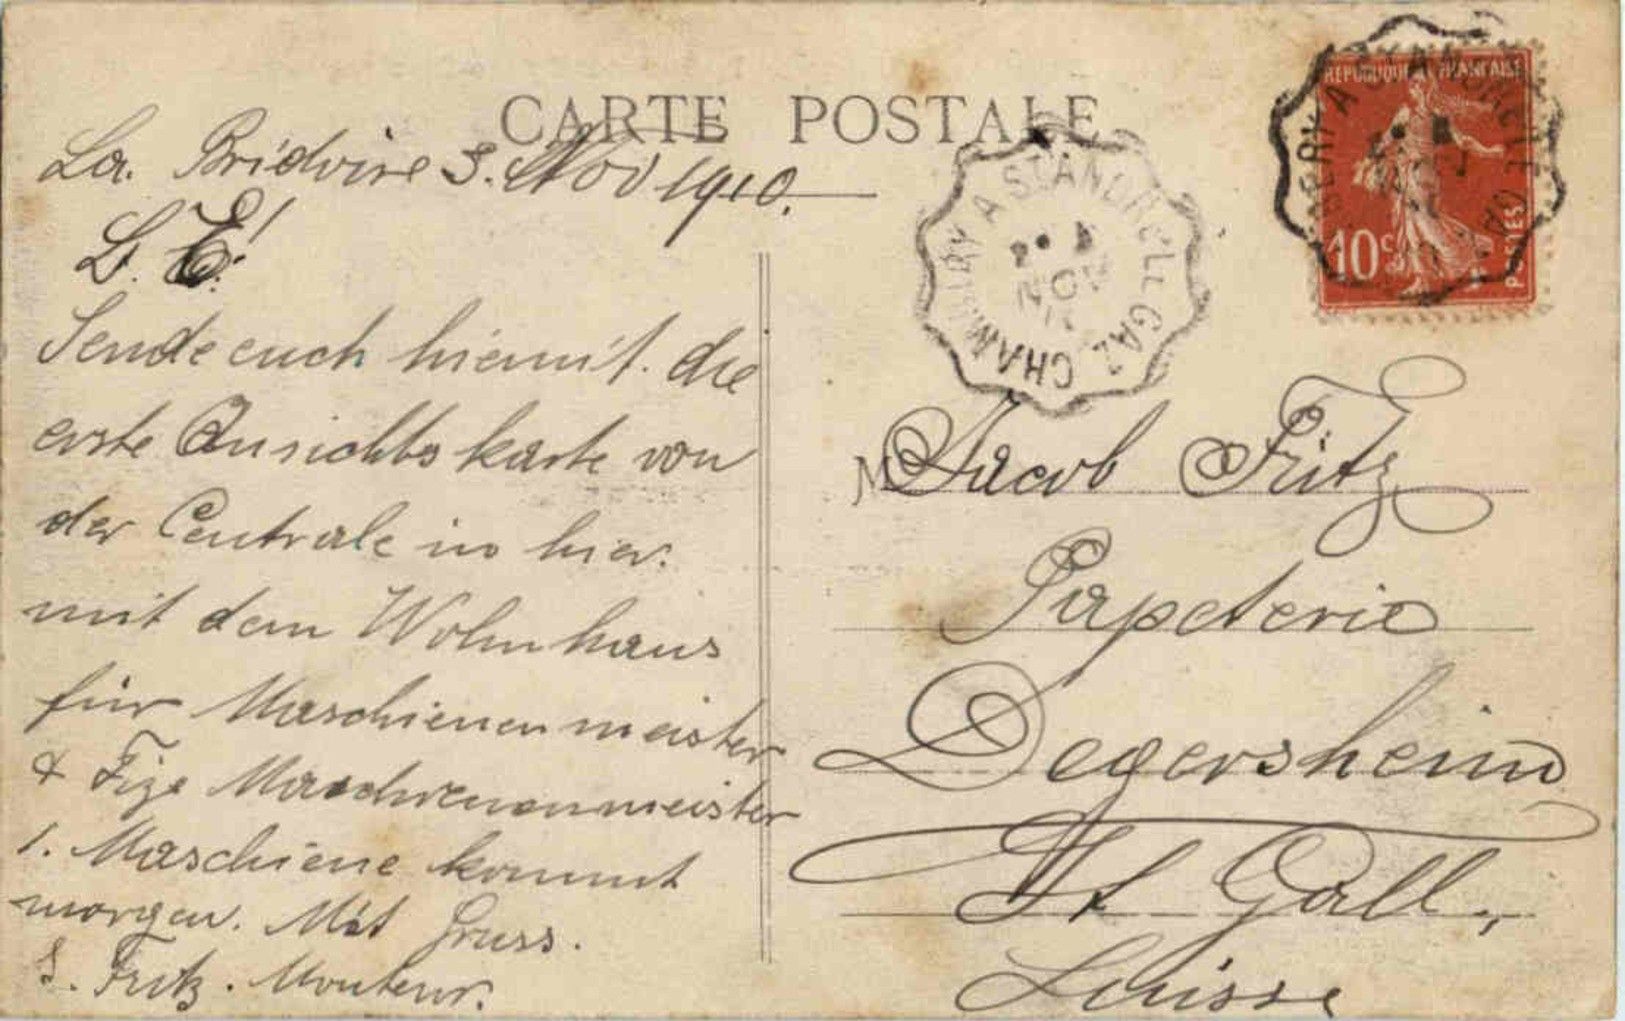 CARTE POSTALE
La. Bridoire 3. Nov 1910.
L. E!
Sende euch hiemit. die
erste Ansichtskarte von
der Centrale in hier.
mit dem Wohnhaus
für Maschienenmeister
& Fize Maschienenmeister
1. Maschiene kommt
morgen. Mit Gruss.
J. Fritz. Monteur.
A ST ANDRE LE GAZ CHAMBERY
NOV
REPUBLIQUE FRANCAISE
10c POSTES
M Jacob Fritz
Papeterie
Degersheim
St Gall.
Suisse